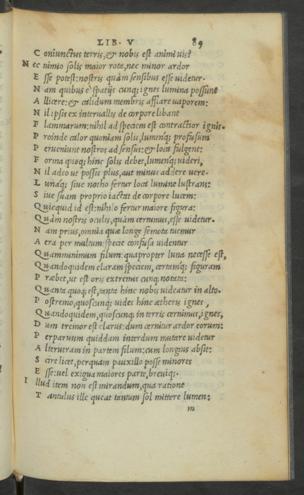 LIB. V 89
Coniunctus terris, & nobis est animi uis?
Nec nimio solis maior rota, nec minor ardor
Esse potest: nostris quàm sensibus esse uidetur.
Nam quibus è spatijs cunq; ignes lumina possunt
Allicere: & calidum membris afflare uaporem:
Nil ipsi ex interuallis de corpore libant
Flammarum: nihil ad speciem est contractior ignis.
Proinde calor quoniam solis, lumenq; profusum
Perueniunt nostros ad sensus: & loca fulgent:
Forma quoq; hinc solis debet, lumenq; uideri,
Nil adeo ut possis plus, aut minus addere uere.
Lunaq; siue notho fertur loca lumine lustrans:
Siue suam proprio iactat de corpore lucem:
Quicquid id est: nihilo fertur maiore figura:
Quàm nostris oculis, quàm cernimus, esse uidetur.
Nam prius, omnia quæ longe semota tuemur
Aera per multum: specie confusa uidentur
Quam minimum filum: quapropter luna necesse est,
Quandoquidem claram speciem, certamq; figuram
Præbet, ut est oris extremis cunq; notata:
Quanta quoq; est, tanta hinc nobis uideatur in alto.
Postremo, quoscunq; uides hinc ætheris ignes,
Quandoquidem, quoscunq; in terris cernimus, ignes,
Dum tremor est clarus: dum cernitur ardor eorum:
Perparuum quiddam interdum mutare uidetur
Alteruram in partem filum: cum longius absit:
Scire licet, perquam pauxillo posse minores
Esse: uel exigua maiores parte, breuiq;.
Illud item non est mirandum, qua ratione
Tantulus ille queat tantum sol mittere lumen:
m